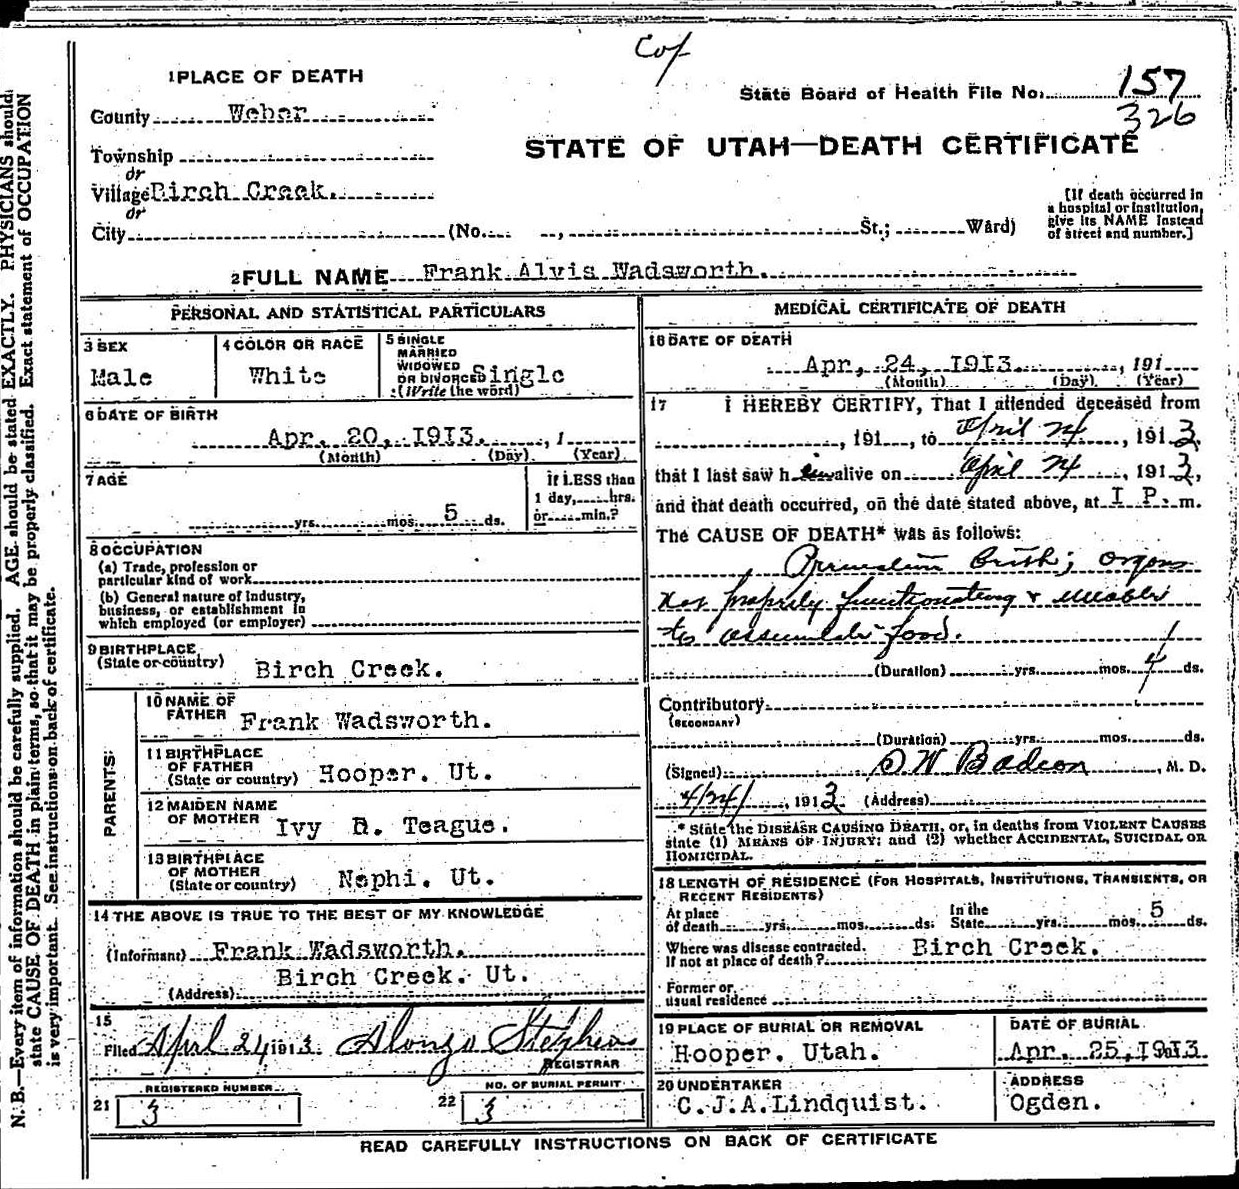 Cof
1 PLACE OF DEATH
State Board of Health File No. 157
326
County Weber
STATE OF UTAH—DEATH CERTIFICATE
Township
or
Village Birch Creek.
or
City (No. , St.; Ward)
[If death occurred in
a hospital or institution,
give its NAME instead
of street and number.]
2 FULL NAME Frank Alvis Wadsworth.
PERSONAL AND STATISTICAL PARTICULARS
3 SEX
Male
4 COLOR OR RACE
White
5 SINGLE
MARRIED
WIDOWED
OR DIVORCED Single
(Write the word)
6 DATE OF BIRTH
Apr. 20, 1913. , 1
(Month) (Day) (Year)
7 AGE
yrs. mos. 5 ds.
If LESS than
1 day, hrs.
or min.?
8 OCCUPATION
(a) Trade, profession or
particular kind of work
(b) General nature of industry,
business, or establishment in
which employed (or employer)
9 BIRTHPLACE
(State or country) Birch Creek.
PARENTS
10 NAME OF
FATHER Frank Wadsworth.
11 BIRTHPLACE
OF FATHER
(State or country) Hooper. Ut.
12 MAIDEN NAME
OF MOTHER Ivy D. Teague.
13 BIRTHPLACE
OF MOTHER
(State or country) Nephi. Ut.
14 THE ABOVE IS TRUE TO THE BEST OF MY KNOWLEDGE
(Informant) Frank Wadsworth.
Birch Creek. Ut.
(Address)
15
Filed April 24 1913. Alonzo Stephens
REGISTRAR
REGISTERED NUMBER
21 3
NO. OF BURIAL PERMIT
22 3
MEDICAL CERTIFICATE OF DEATH
16 DATE OF DEATH
Apr, 24, 1913. , 191
(Month) (Day) (Year)
17 I HEREBY CERTIFY, That I attended deceased from
, 191 , to April 24 , 1913,
that I last saw him alive on April 24 , 1913,
and that death occurred, on the date stated above, at 1 P. m.
The CAUSE OF DEATH* was as follows:
Premature birth; organs
not properly functionating & unable
to assimilate food.
(Duration) yrs. mos. 4 ds.
Contributory
(SECONDARY)
(Duration) yrs. mos. ds.
(Signed) O W Badcon , M. D.
4/24/ , 1913. (Address)
* State the DISEASE CAUSING DEATH, or, in deaths from VIOLENT CAUSES
state (1) MEANS OF INJURY; and (2) whether ACCIDENTAL, SUICIDAL OR
HOMICIDAL.
18 LENGTH OF RESIDENCE (FOR HOSPITALS, INSTITUTIONS, TRANSIENTS, OR
RECENT RESIDENTS)
At place
of death yrs. mos. ds.
In the
State yrs. mos. 5 ds.
Where was disease contracted.
If not at place of death? Birch Creek.
Former or
usual residence
19 PLACE OF BURIAL OR REMOVAL
Hooper. Utah.
DATE OF BURIAL
Apr. 25, 1913
20 UNDERTAKER
C.J.A.Lindquist.
ADDRESS
Ogden.
READ CAREFULLY INSTRUCTIONS ON BACK OF CERTIFICATE
N. B.—Every item of information should be carefully supplied. AGE should be stated EXACTLY. PHYSICIANS should
state CAUSE OF DEATH in plain terms, so that it may be properly classified. Exact statement of OCCUPATION
is very important. See instructions on back of certificate.